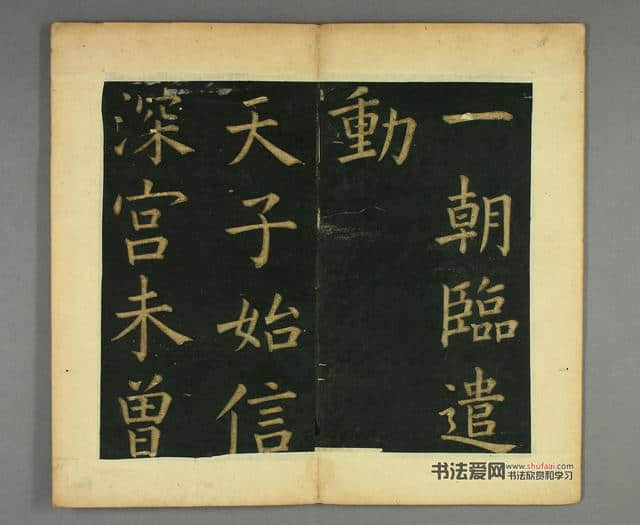 一朝臨遣
動
天子始信
深宮未曾
书法爱网 www.shufaai.com
书法欣赏和学习